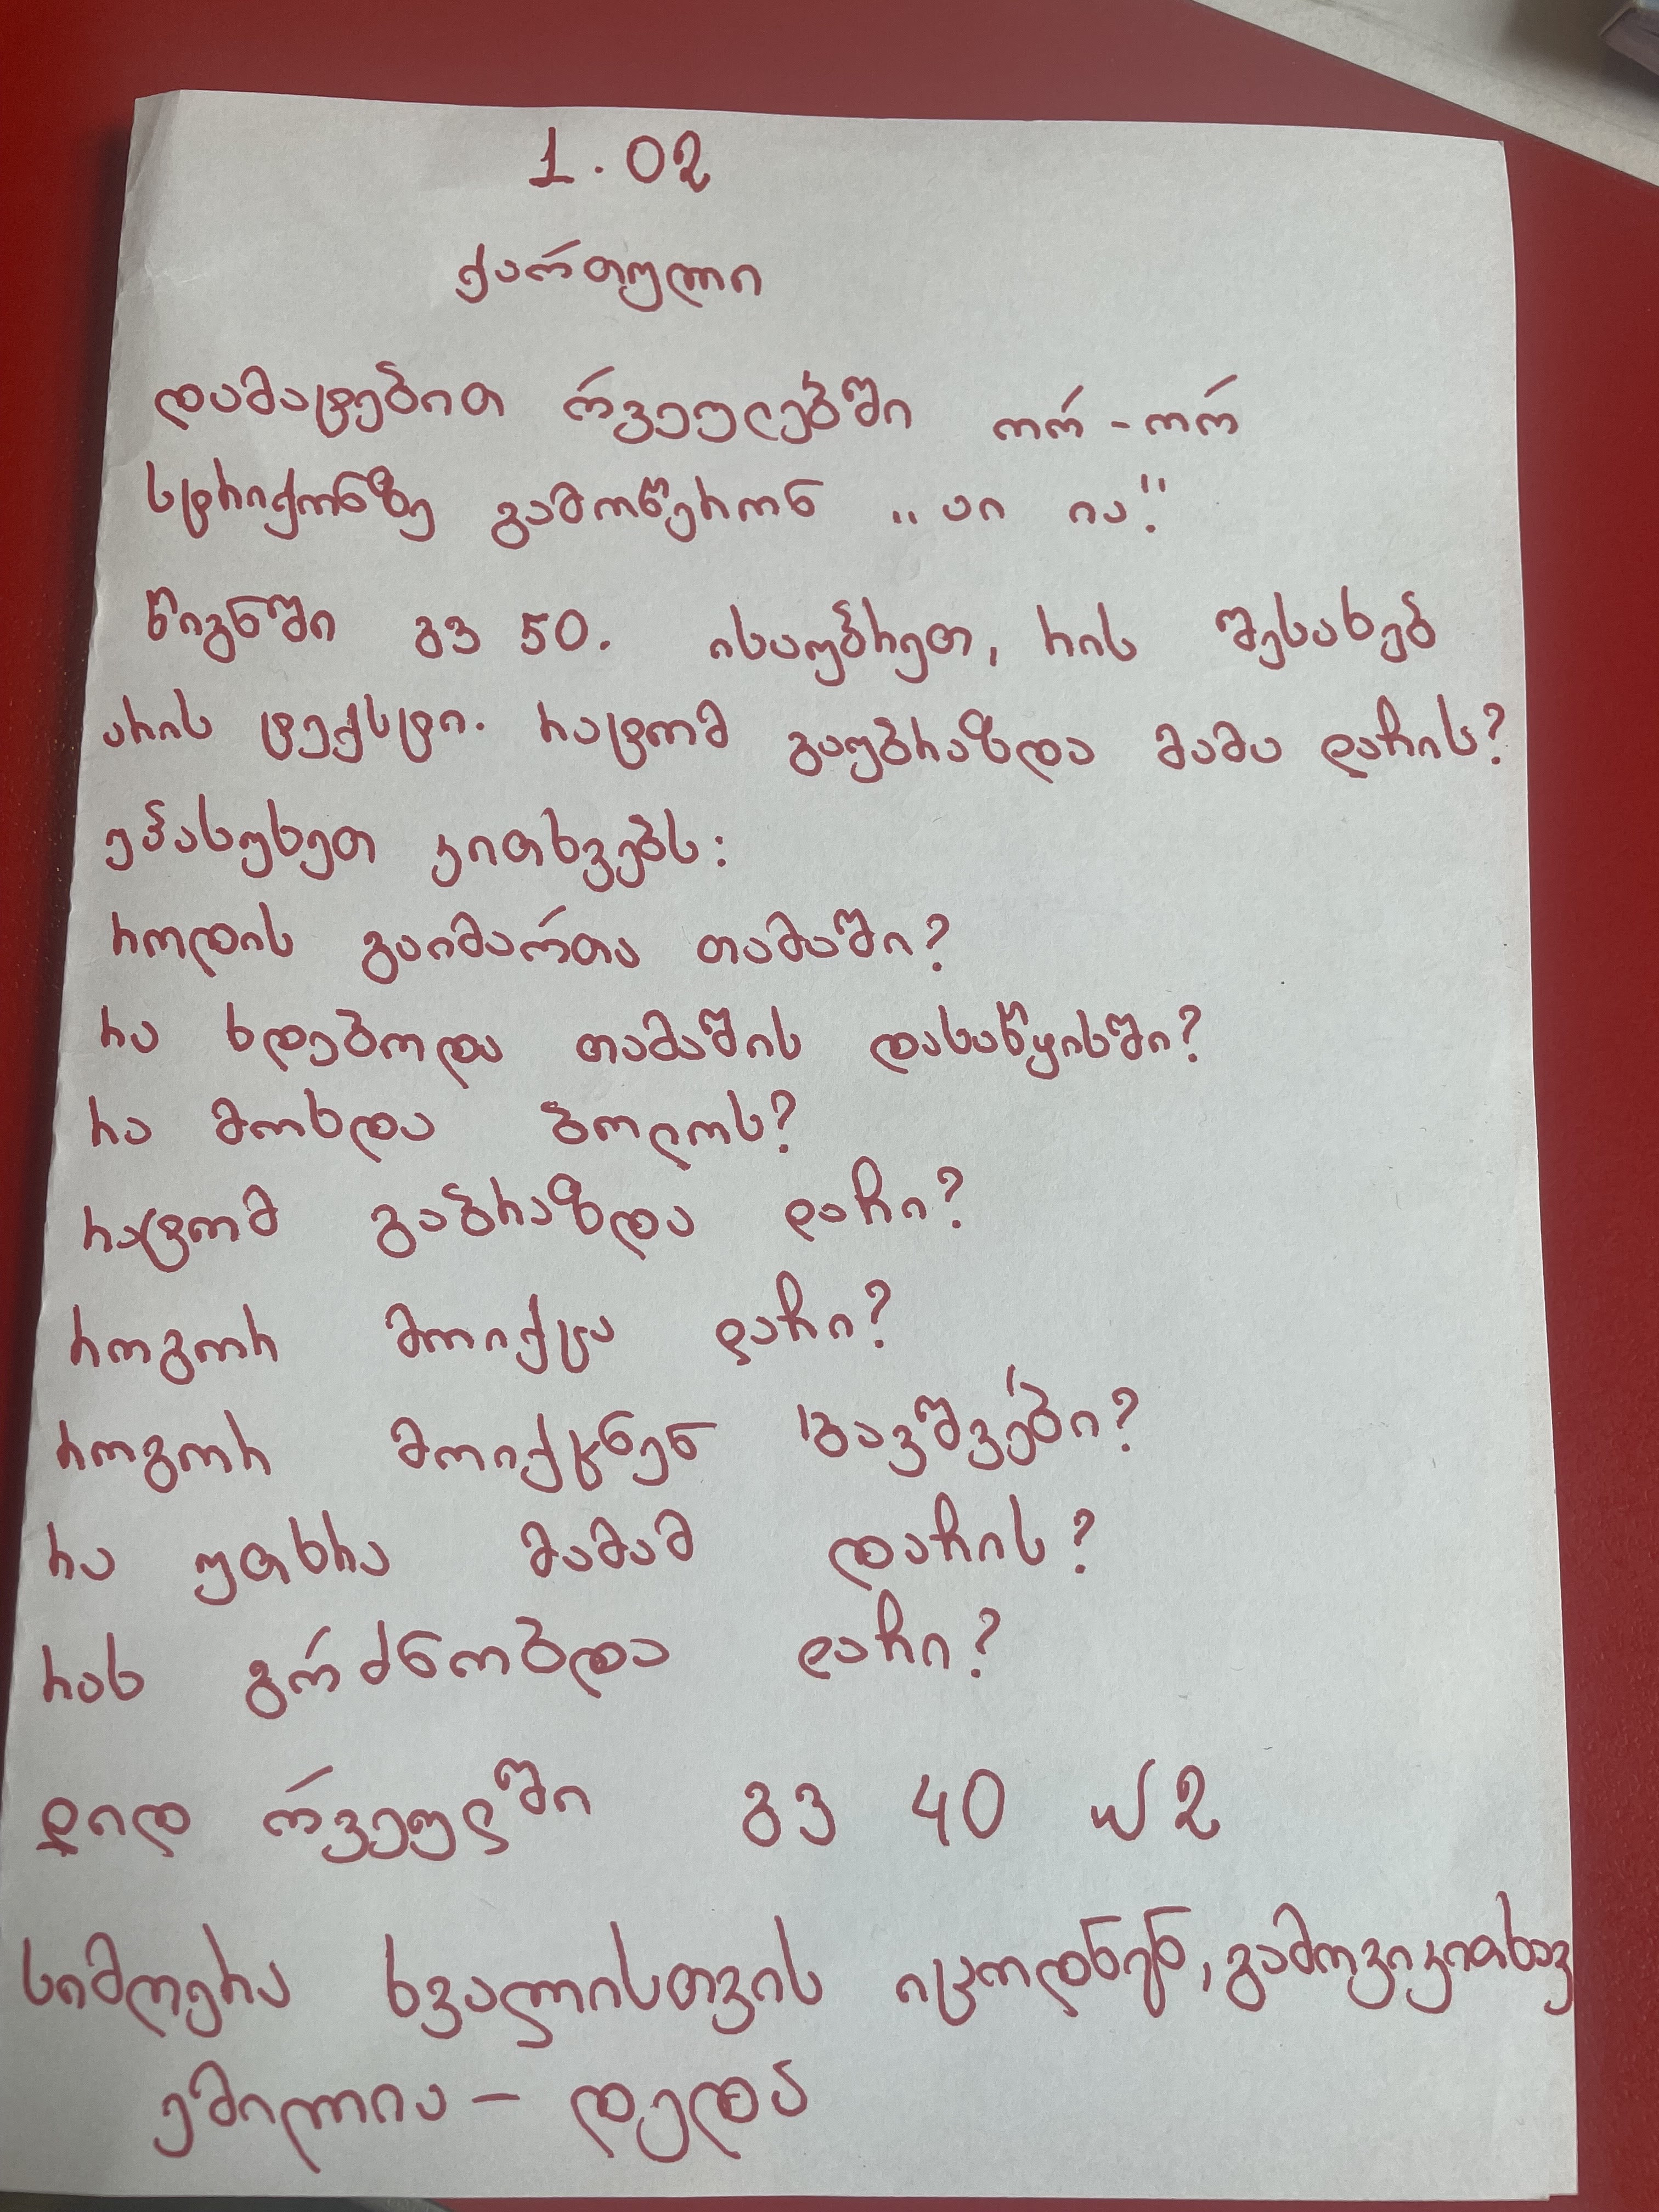 1.02
ქართული
დამატებით რვეულებში ორ-ორ
სტრიქონზე გამოწერონ „აი ია".
წიგნში გვ 50. ისაუბრეთ, რის შესახებ
არის ტექსტი. რატომ გაუბრაზდა მამა დაჩის?
უპასუხეთ კითხვებს:
როდის გაიმართა თამაში?
რა ხდებოდა თამაშის დასაწყისში?
რა მოხდა ბოლოს?
რატომ გაბრაზდა დაჩი?
როგორ მოიქცა დაჩი?
როგორ მოიქცნენ ბავშვები?
რა უთხრა მამამ დაჩის?
რას გრძნობდა დაჩი?
დიდ რვეულში გვ 40 № 2
სიმღერა ხვალისთვის იცოდნენ, გამოვიკითხავ
ემილია - დედა